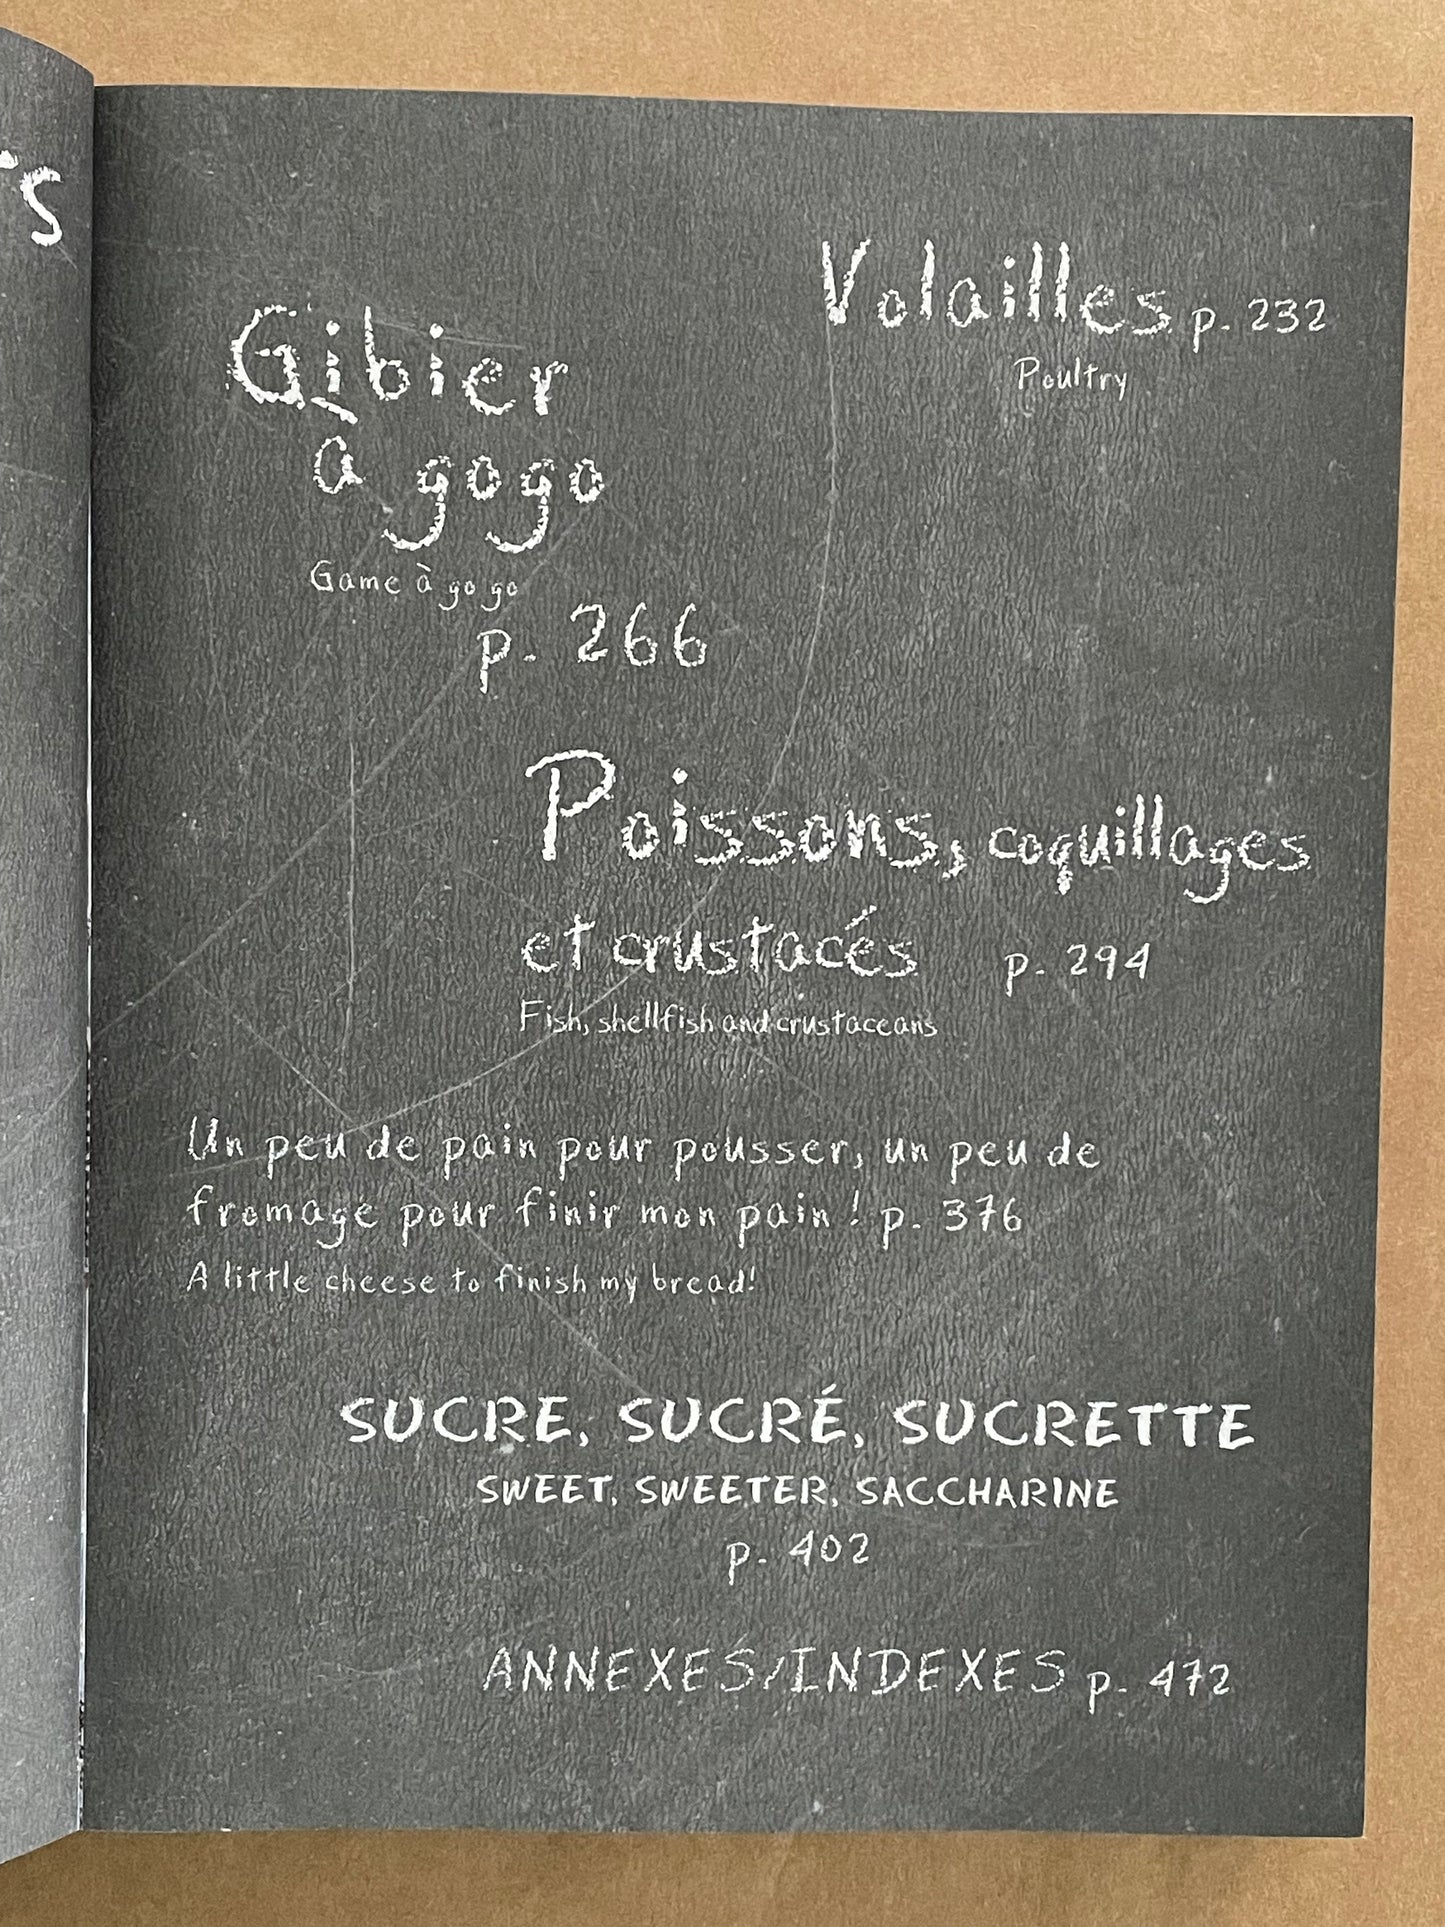 's
Volailles p. 232
Poultry
Gibier
à gogo
Game à go go
p. 266
Poissons, coquillages
et crustacés p. 294
Fish, shellfish and crustaceans
Un peu de pain pour pousser, un peu de
fromage pour finir mon pain ! p. 376
A little cheese to finish my bread!
SUCRE, SUCRÉ, SUCRETTE
SWEET, SWEETER, SACCHARINE
p. 402
ANNEXES/INDEXES p. 472